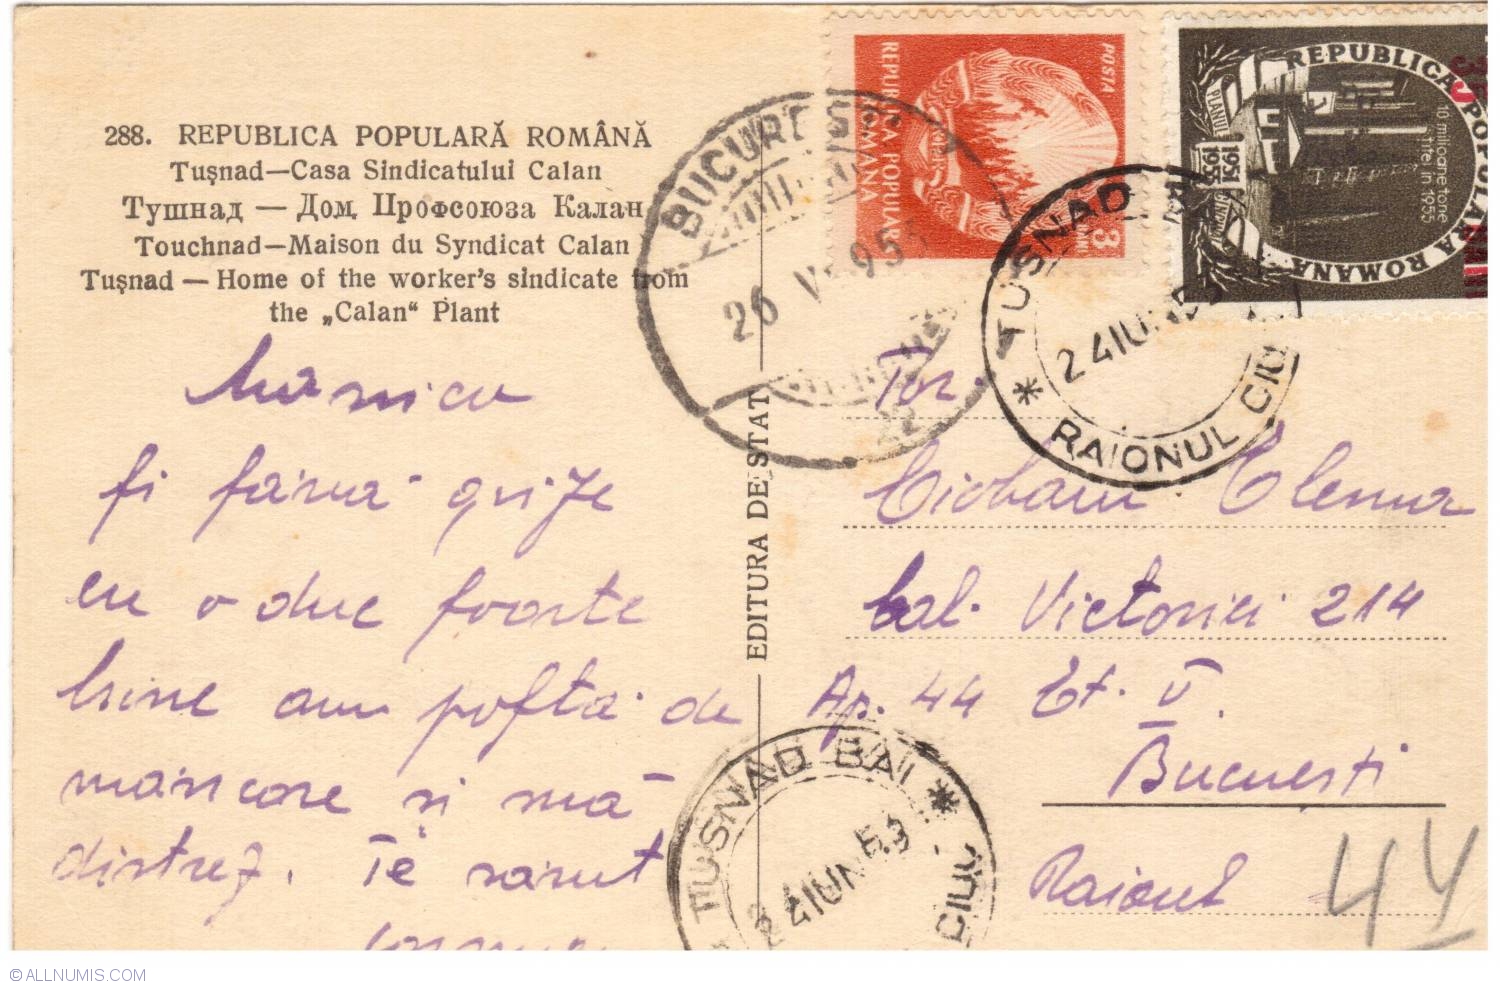 288. REPUBLICA POPULARĂ ROMÂNĂ
Tușnad—Casa Sindicatului Calan
Тушнад — Дом Профсоюза Калан
Touchnad—Maison du Syndicat Calan
Tușnad — Home of the worker's sindicate from
the „Calan“ Plant
Mămica
fi fără grije
eu o duc foarte
bine am poftă de
mâncare si mă
distrez. Te sărut
EDITURA DE STAT
Tov.
Ciobanu Elena
Cal. Victoriei 214
Ap. 44 Et. V.
București
Raionul
44
POSTA
REPUBLICA POPULARA
ROMANA
3
REPUBLICA POPULARA ROMANA
10 milioane tone
titei in 1955
PLANUL
1951
1955
35
BUCUREȘTI
26 V 953
22
TUSNAD
24 IUN 53
* RAIONUL CIUC
TUSNAD BAI *
24 IUN 53
CIUC
©ALLNUMIS.COM